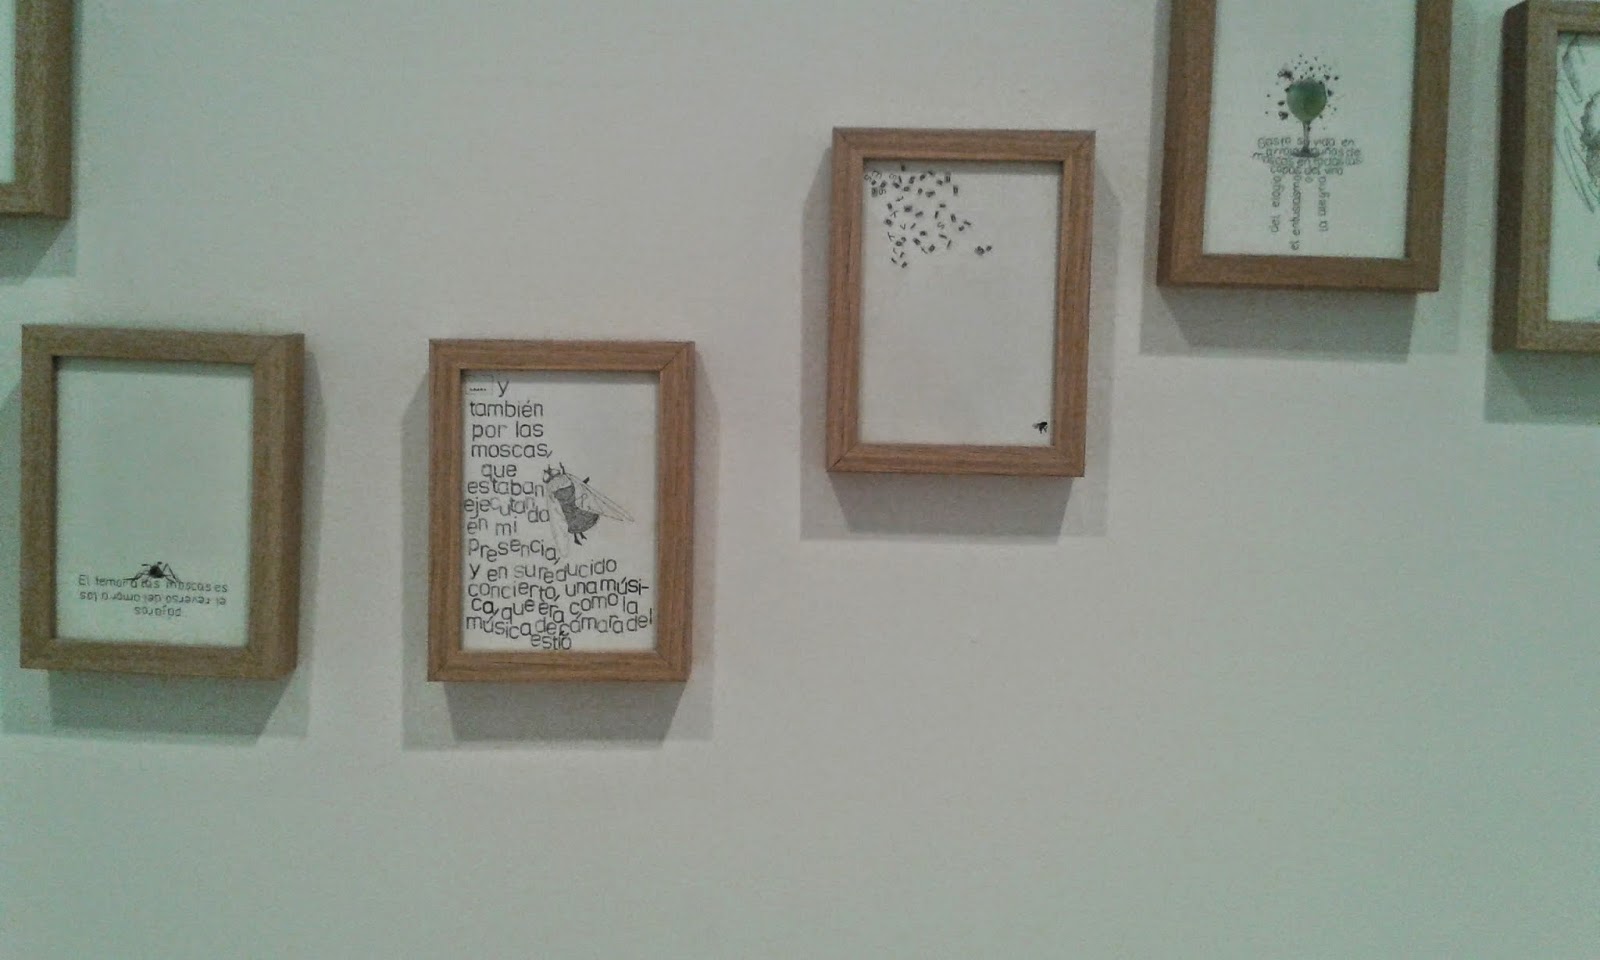 El temor a las moscas es
el reverso del amor a los
pájaros
[.....] y
también
por las
moscas,
que
estaban
ejecutan
do
en mi
presencia,
y en su reducido
concierto, una músi-
ca, que era como la
música de cámara del
estío
Gasta su vida en
del elogio
el entusiasmo
la alegría